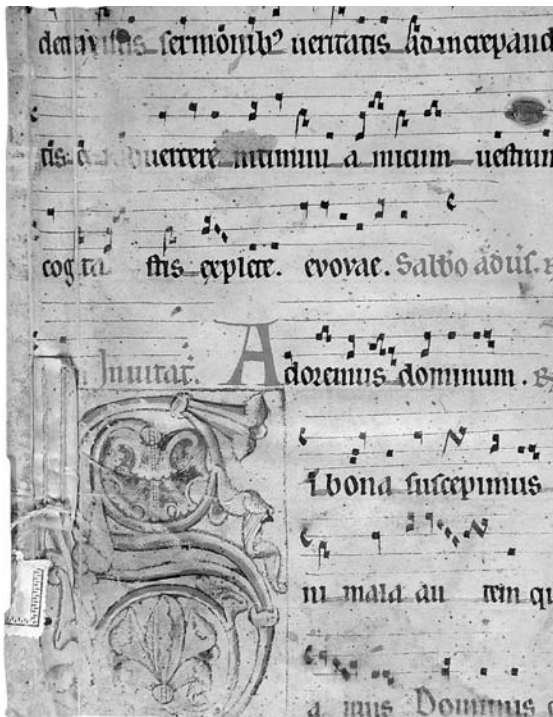 sermonib⁹ ueritatis ad increpand
uertere nitimini amicum uestrum
cogita stis explete. evovae. Sabbo
Inuitat. Adoremus dominum.
Si bona suscepimus
ni mala au tem qu
a mus Dominus